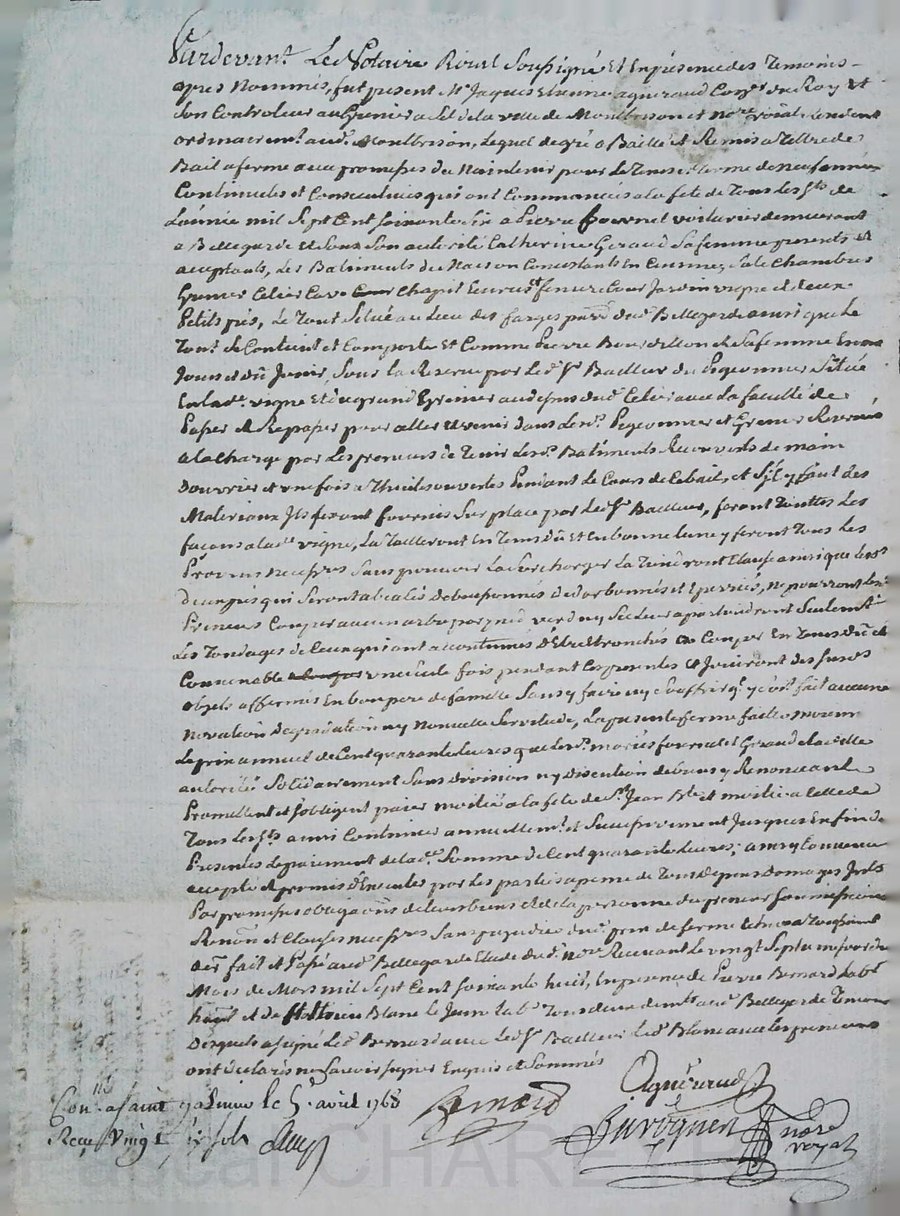 Pardevant Le Notaire Roial Soussigné Et En présence des Temoins
apres Nommés, fut present Mr Jaques Etienne agueraud Conr du Roy Et
Son Controleur au Grenier a Sel de la ville de Montbrison et nore roial residant
ordinairemt aud. Montbrison, Lequel de gré a Baillé et Remis a Tiltre de
Bail a ferme avec promesses de Maintenir pour Le Tems et terme de neuf années
Continuelles et Consecutives qui ont Commancés a la fete de Tous Les Sts de
L'année mil Sept Cent Soixante Six a Pierre fournet voiturier demeurant
a Bellegarde et Sous Son autorité Catherine Geraud Sa femme presents et
acceptants, Les Batiments de Maison Consistants En Cuisine, Sale Chambres
Grenier Celier Cave Chapit Ecurie et feniere Cour Jardin vigne et deux
Petits prés, Le Tout Situé au Lieu des farges parr. dud. Bellegarde ainsi que Le
Tout Se Contient et Comporte Et Comme Pierre Bourdillon et Sa femme En ont
Jouis et dû Jouir, Sous la Reserve par Led. Sr Bailleur du Pigeonnier Situé
En lad. vigne Et du grand Grenier au dessus dud. Celier avec La faculté de
Passer et Repasser pour aller et venir dans Lesd. Pigeonnier et Grenier Reservés
a la Charge par Les preneurs de Tenir Lesd. Batiments Recouverts de main
D'ouvrier et une fois a Thuiles ouvertes Pendant Le Cours de Ce bail, et S'il y faut des
Materiaux Ils Seront fournis Sur place par Led. Sr Bailleur, feront Touttes Les
façons a lad. vigne, La Tailleront En Tems dû et En bonne lune y feront Tous Les
Provins necessres Sans pouvoir La Surcharger La Tiendront Clause ainsi que Les
qui Seront
Preneurs Couper aucun arbre par pied verd ny Sec Leur apartiendront Seulemt
Les Tondages de Ceux qui ont accoutumés d'Etre Etronchés Couper En Tems dû et
Convenable une Seule fois pendant Ces presentes Et Jouiront des Susds
objets affermés En bon pere de famille Sans y faire ny Souffrir qu'il y Soit fait aucune
novation Degradation ny Nouvelle Servitude, La presente ferme faitte moienn
Le prix annuel de Cent quarante Livres que Lesd. mariés fournet et Geraud de la ditte
autorité Solidairement Sans division ny discution de biens y Renonceant
Promettent et S'obligent paier moitié a la fete de St Jean Bte et moitié a Celle de
Tous Les Sts ainsi Continuer annuellemt et Successivement Jusques En fin de
Presentes Le paiement de lad. Somme de Cent quarante Livres; ainsy Convenu
accepté et promis d'Executer par Les parties a peine de Tous Depens Domages Jnts
Par promesses obligaons de leurs biens Et de la personne du preneur Soumissions
Renon et Clauses necessres Sans prejudice du prix de ferme
fait et Passé aud. Bellegarde Etude du d. nore Recevant Le vingt Sept me jour du
Mois de Mars mil Sept Cent Soixante huit, En presence de Pierre Bernard
et de Blanc le Jeune Tous deux demts aud. Bellegarde Temoins
Desquels a Signé Led. Bernard avec Led. Sr Bailleur Led. Blanc avec Les preneurs
ont declarés ne Savoir Signer Enquis et Sommés
Agueraud
Con. a Saint galmier le 5. avril 1768 Bernard
Reçu Vingt Six Sols nore
royal
Pascal CHARE